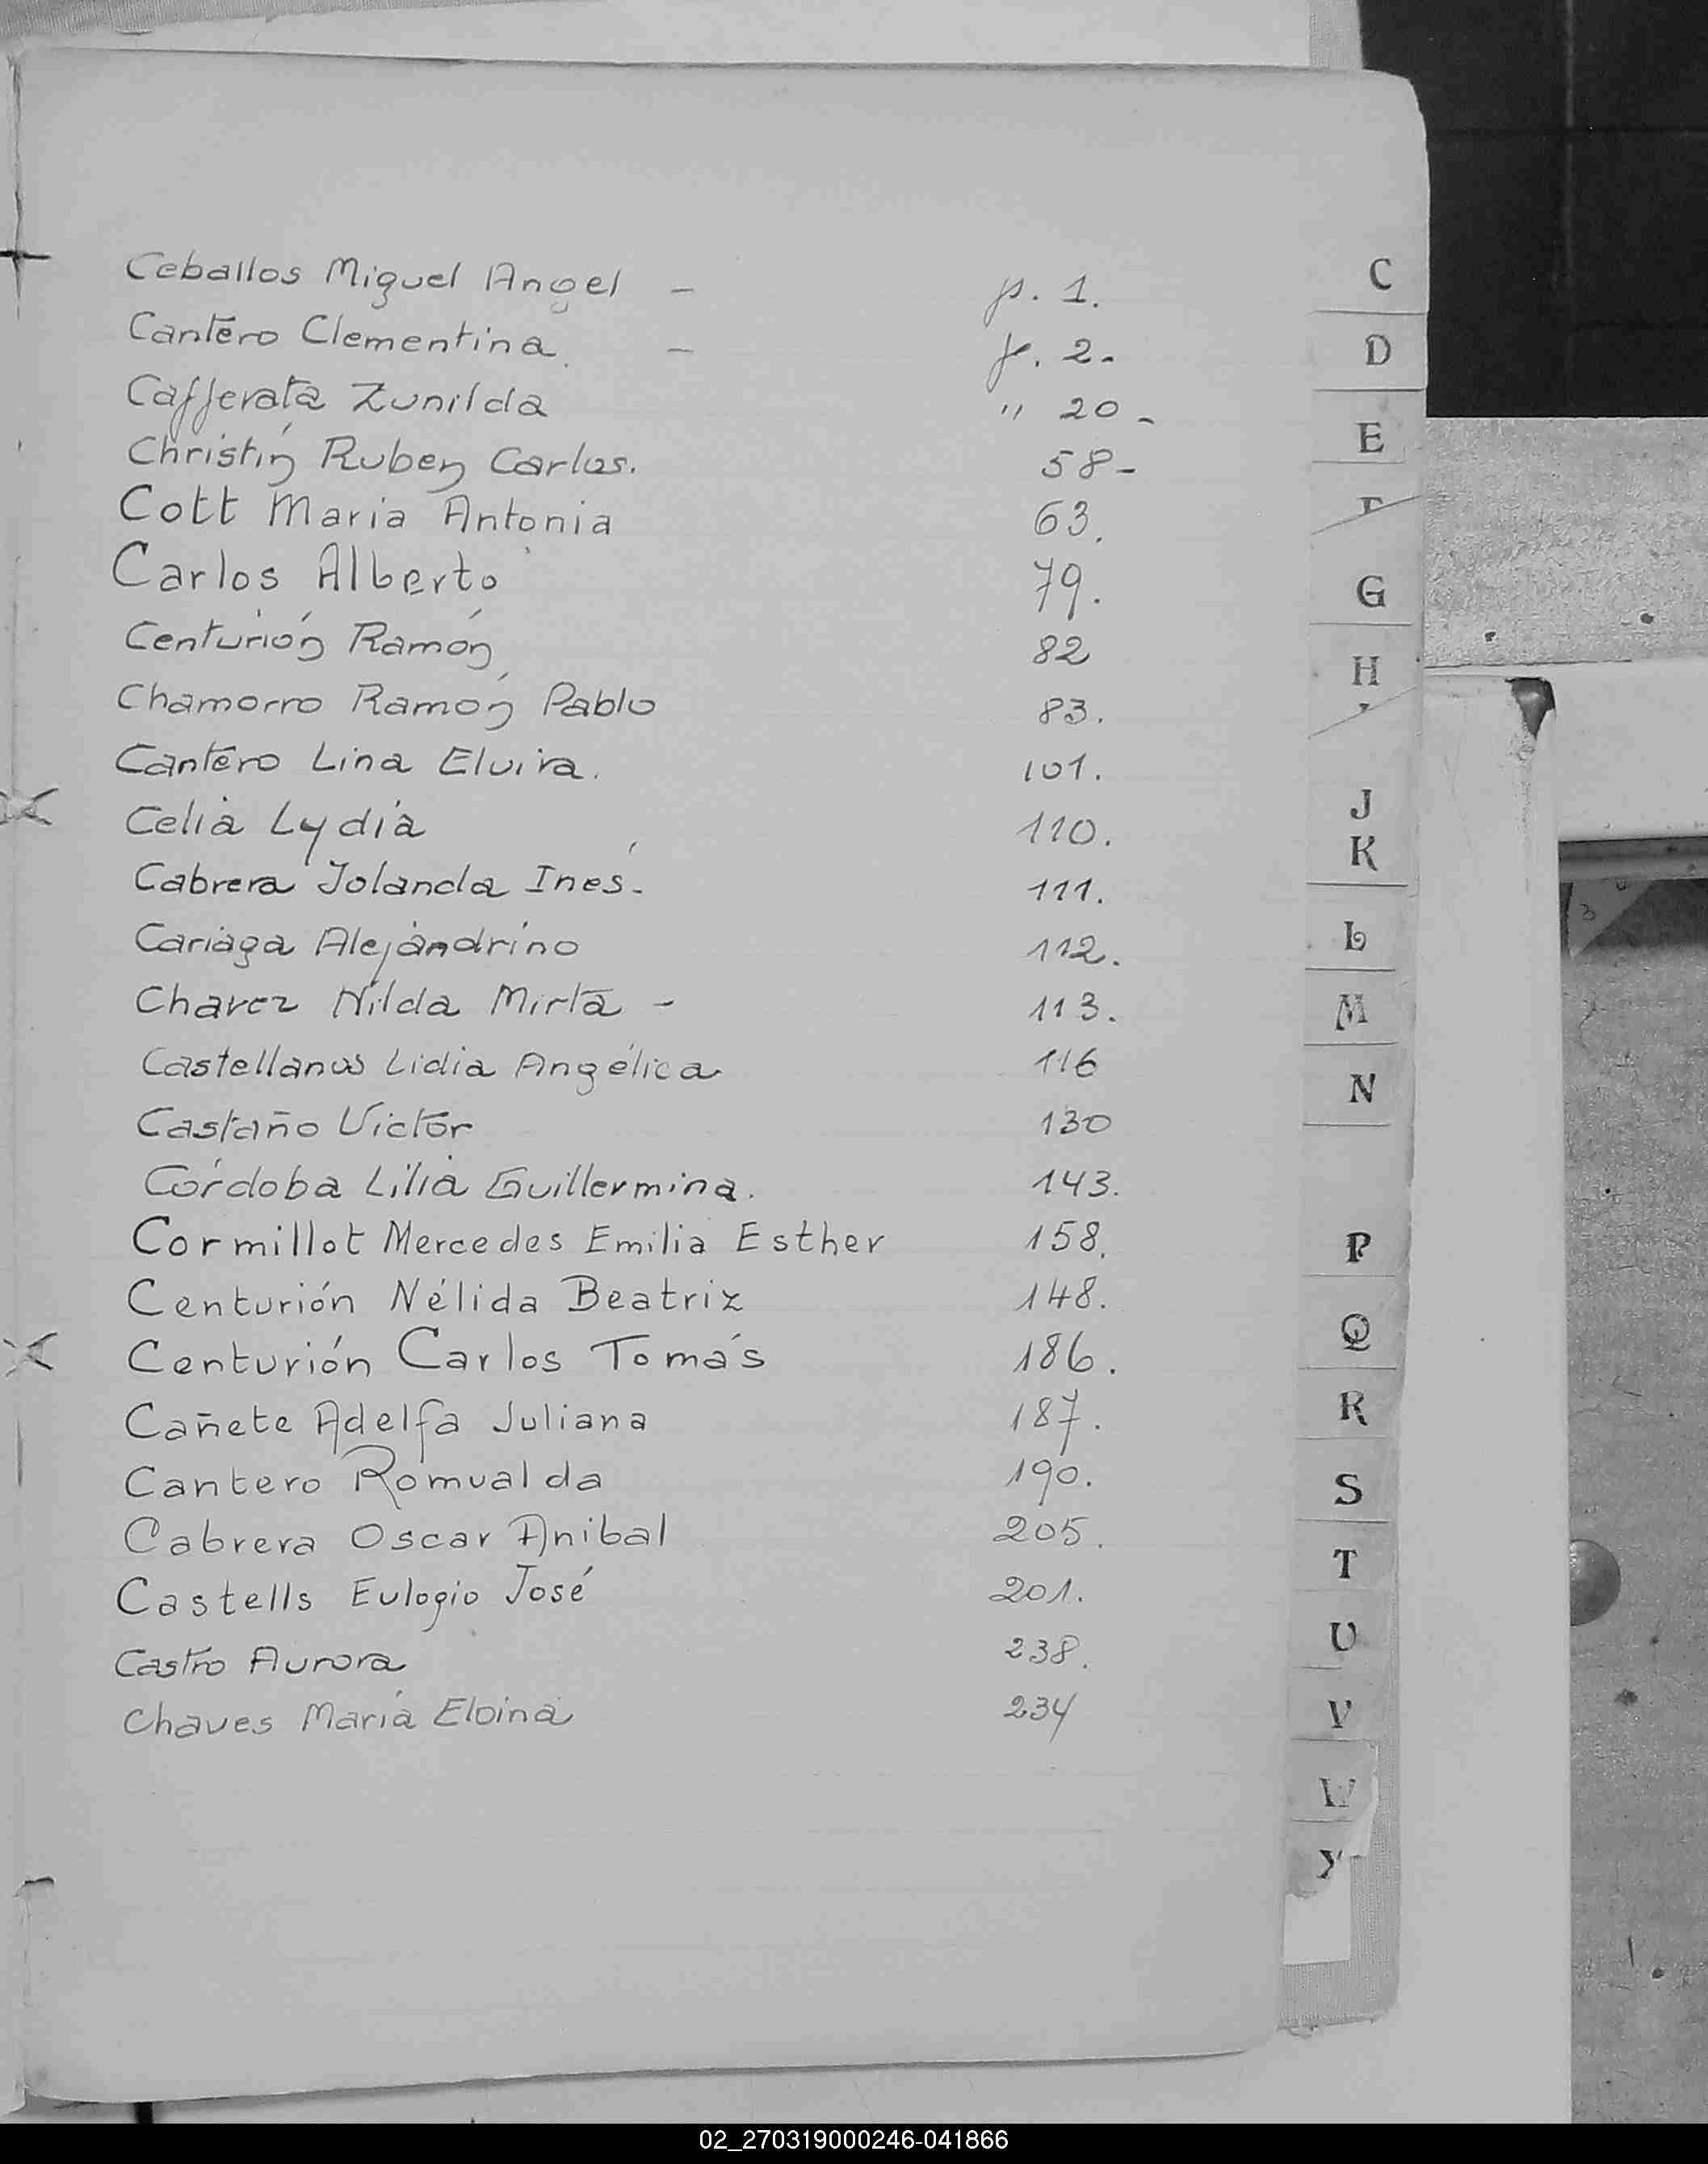 Ceballos Miguel Angel - p. 1.
Cantero Clementina. - p. 2-
Cafferata Zunilda " 20-
Christín Ruben Carlos. 58-
Cott Maria Antonia 63.
Carlos Alberto 79.
Centurión Ramón 82
Chamorro Ramón Pablo 83.
Cantero Lina Elvira. 101.
Celia Lydia 110.
Cabrera Jolanda Inés. 111.
Cariaga Alejandrino 112.
Chavez Nilda Mirta - 113.
Castellanos Lidia Angélica 116
Castaño Victor 130
Córdoba Lilia Guillermina. 143.
Cormillot Mercedes Emilia Esther 158.
Centurión Nélida Beatriz 148.
Centurión Carlos Tomás 186.
Cañete Adelfa Juliana 187.
Cantero Romualda 190.
Cabrera Oscar Anibal 205.
Castells Eulogio José 201.
Castro Aurora 238.
Chaves María Eloina 234
C
D
E
G
H
J
K
L
M
N
P
Q
R
S
T
U
V
W
02_270319000246-041866